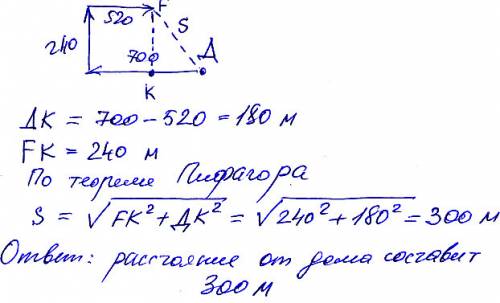 F
520
S
240
700
Д
К
ДК = 700 - 520 = 180 м
FK = 240 м
По теореме Пифагора
S = √FK² + ДК² = √240² + 180² = 300 м
Ответ: расстояние от дома составит
300 м